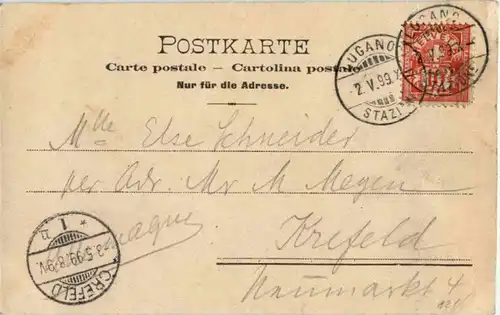 POSTKARTE
Carte postale – Cartolina postale
Nur für die Adresse.
LUGANO
- 2. V. 99. X
STAZ
LUGANO
Mlle Else Schneider
per Adr. Mr M Meyen
Krefeld
Neumarkt 4
* 1 n
3.5.99. 8-9V.
CREFELD